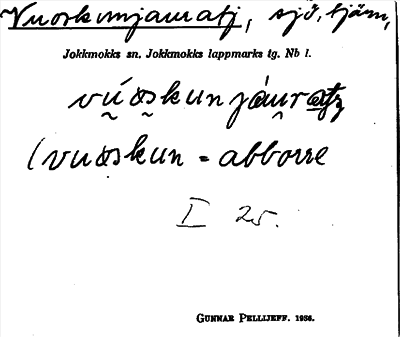 Vuoskunjauratj, sjö, tjärn,
Jokkmokks sn, Jokkmokks lappmarks tg. Nb l.
vúo̰s̰kun jáu̯ratj
(vuoskun = abborre
I 25.
GUNNAR PELLIJEFF. 1936.